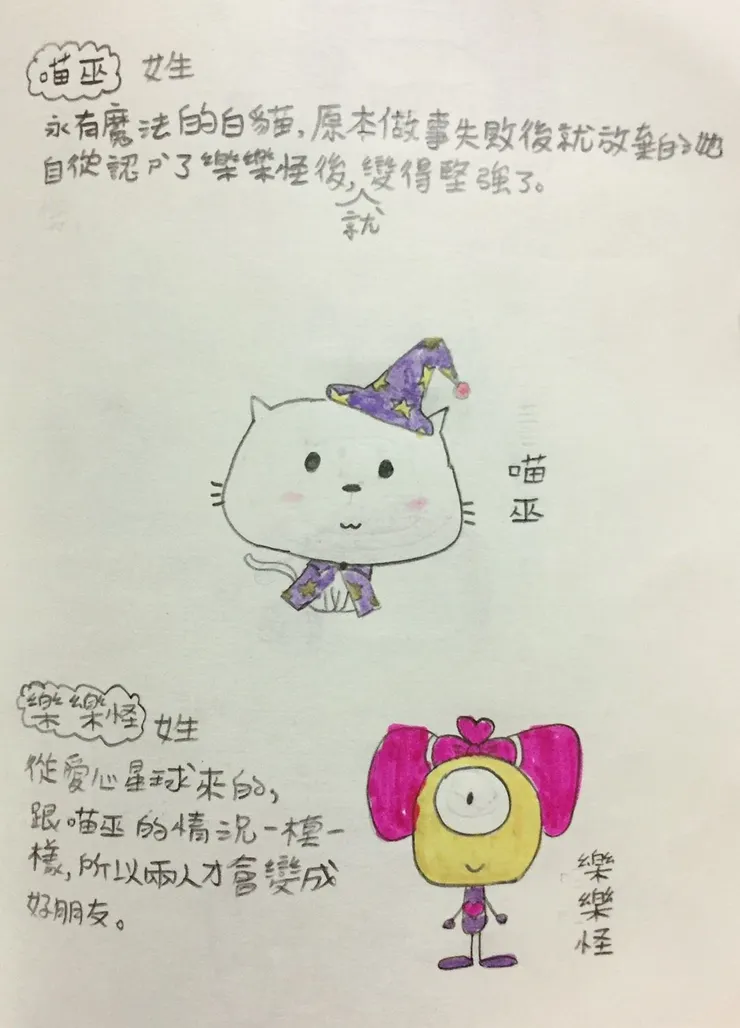 喵巫 女生
永有魔法的白貓,原本做事失敗後就放棄的她
自從認ㄕ了樂樂怪後,變得堅強了。
就
喵巫
樂樂怪 女生
從愛心星球來的,
跟喵巫的情況一模一
樣,所以兩人才會變成
好朋友。
樂樂怪